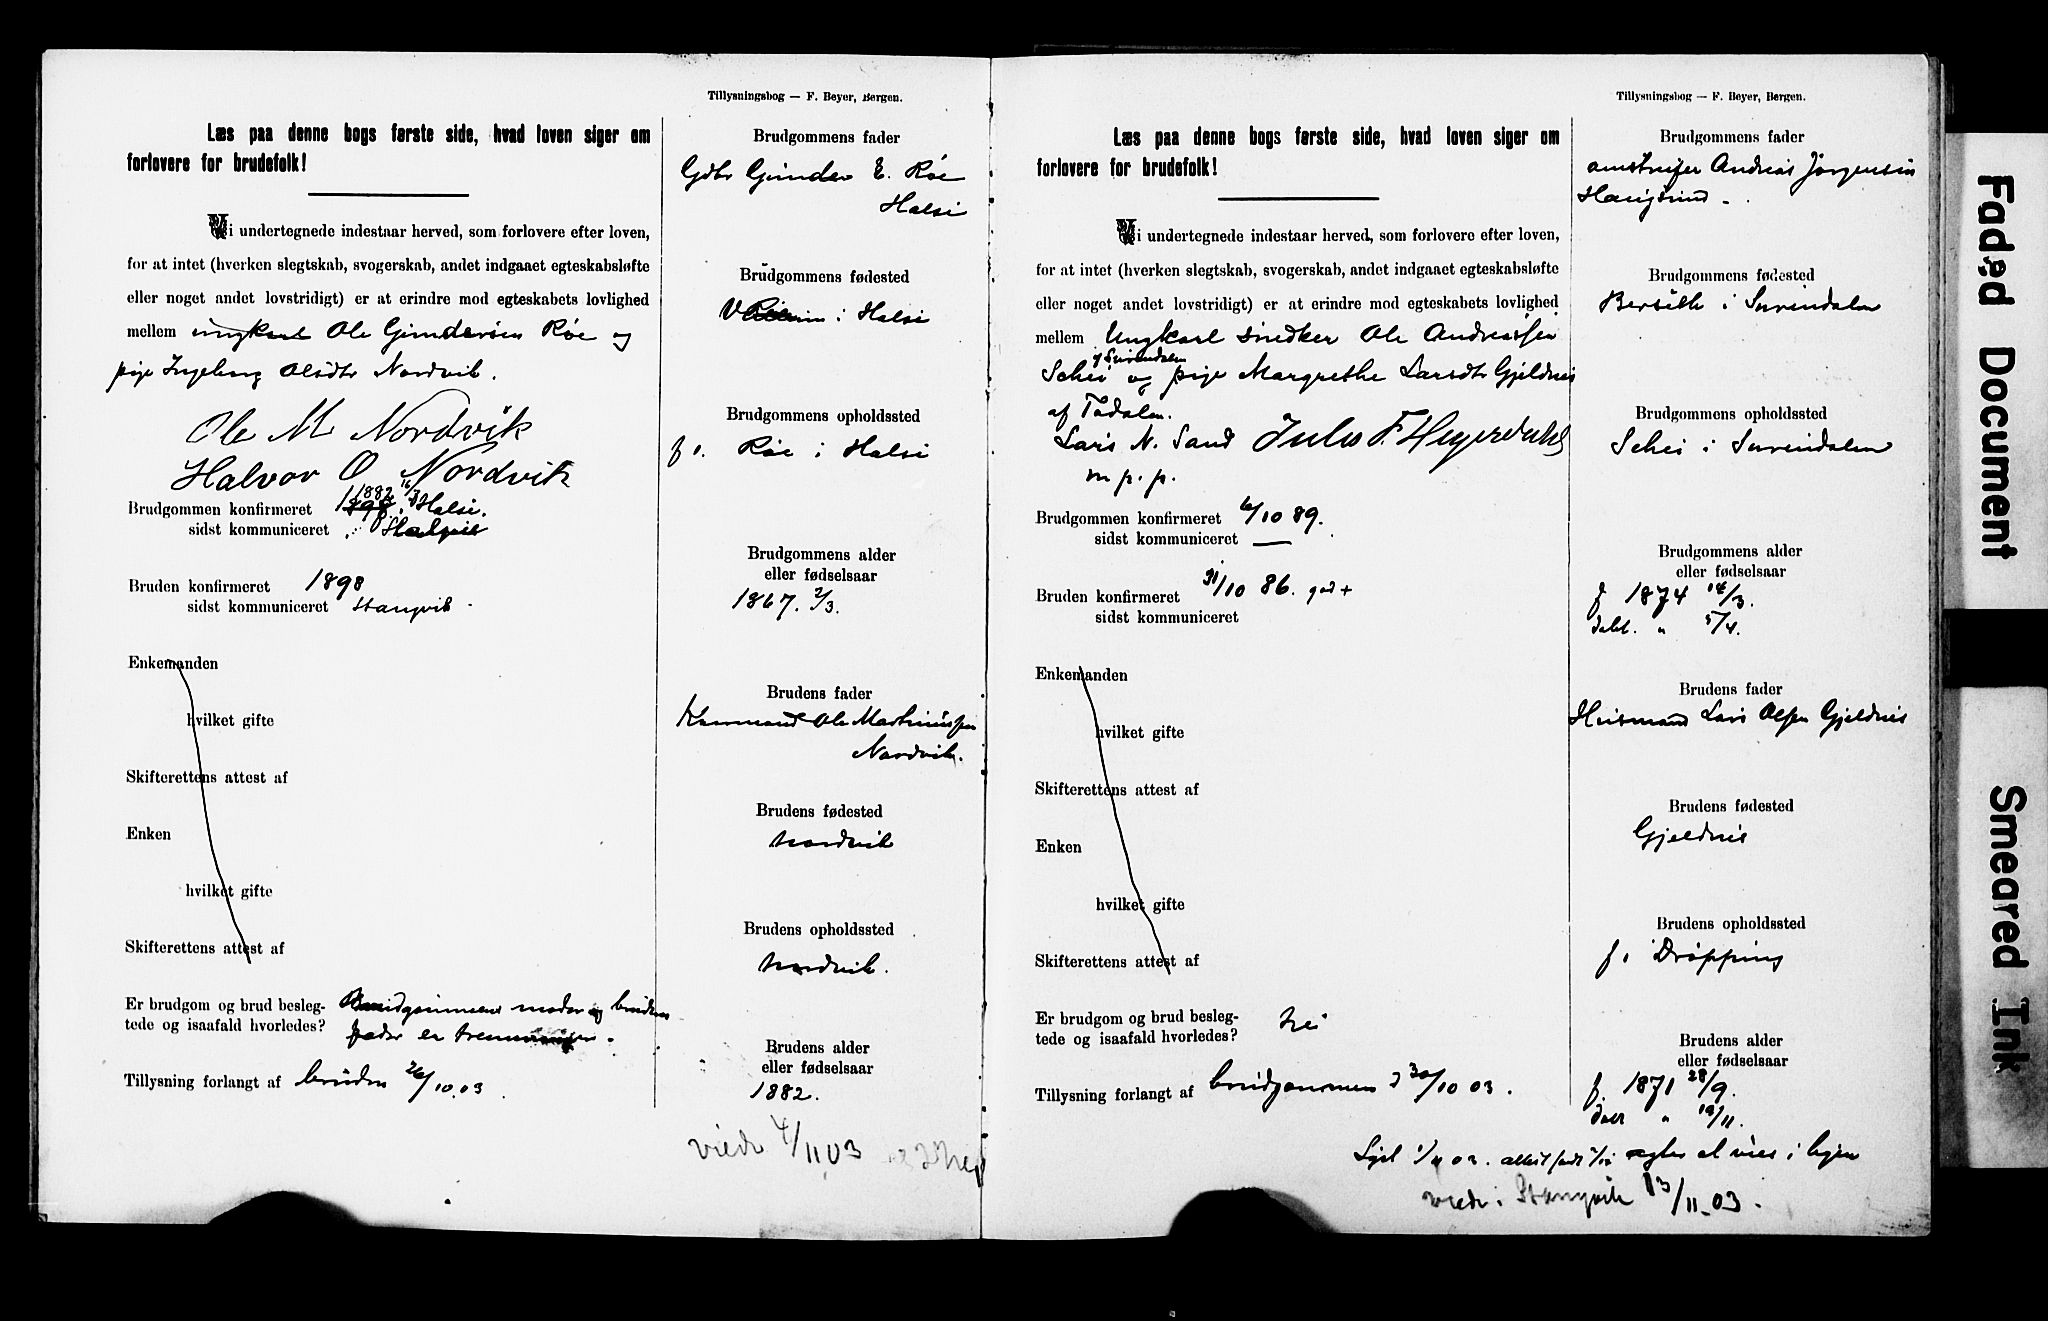 Tillysningsbog — F. Beyer, Bergen.
Læs paa denne bogs første side, hvad loven siger om
forlovere for brudefolk!
Vi undertegnede indestaar herved, som forlovere efter loven,
for at intet (hverken slegtskab, svogerskab, andet indgaaet egteskabsløfte
eller noget andet lovstridigt) er at erindre mod egteskabets lovlighed
mellem ungkarl Ole Gundersen Røe og
pige Ingeborg Olsdtr Nordvik.
Ole M Nordvik
Halvor O Nordvik
1882 16/7
Brudgommen konfirmeret i Halse.
sidst kommuniceret
Bruden konfirmeret 1898
sidst kommuniceret Stangvik
Enkemanden
hvilket gifte
Skifterettens attest af
Enken
hvilket gifte
Skifterettens attest af
Er brudgom og brud besleg- Brudgommens moder og brudens
tede og isaafald hvorledes? fader er
Tillysning forlangt af bruden 26/10.03
Brudgommens fader
Gdbr Gunder E. Røe
Halse
Brudgommens fødested
i Halse
Brudgommens opholdssted
f. Røe i Halse
Brudgommens alder
eller fødselsaar
1867. 2/3.
Brudens fader
Ole Martinussen
Nordvik.
Brudens fødested
Nordvik
Brudens opholdssted
Nordvik.
Brudens alder
eller fødselsaar
1882.
viede 4/11 03
Tillysningsbog — F. Beyer, Bergen.
Læs paa denne bogs første side, hvad loven siger om
forlovere for brudefolk!
Vi undertegnede indestaar herved, som forlovere efter loven,
for at intet (hverken slegtskab, svogerskab, andet indgaaet egteskabsløfte
eller noget andet lovstridigt) er at erindre mod egteskabets lovlighed
mellem Ungkarl snedker Ole Andreassen
af Surendalen
Schei og pige Margrethe Larsdtr Gjeldnes
af Todalen.
Lars N. Sand Julus F. Heyerdahl
m. p. p.
Brudgommen konfirmeret 6/10 89.
sidst kommuniceret —
Bruden konfirmeret 31/10 86. god +
sidst kommuniceret
Enkemanden
hvilket gifte
Skifterettens attest af
Enken
hvilket gifte
Skifterettens attest af
Er brudgom og brud besleg- Nei
tede og isaafald hvorledes?
Tillysning forlangt af brudgommen d 30/10 03.
Brudgommens fader
Andreas Jørgensen
Haugsund.
Brudgommens fødested
i Surendalen
Brudgommens opholdssted
Schei i Surendalen
Brudgommens alder
eller fødselsaar
f. 1874 14/3.
døbt. " 5/4.
Brudens fader
Husmand Lars Olsen Gjeldnes
Brudens fødested
Gjeldnes
Brudens opholdssted
f. i Drøpping
Brudens alder
eller fødselsaar
f. 1871 28/9.
døbt " 19/11.
Lyst 1/11 03. agtes at vies i
viede i Stangvik 13/11.03.
Faded Document
Smeared Ink